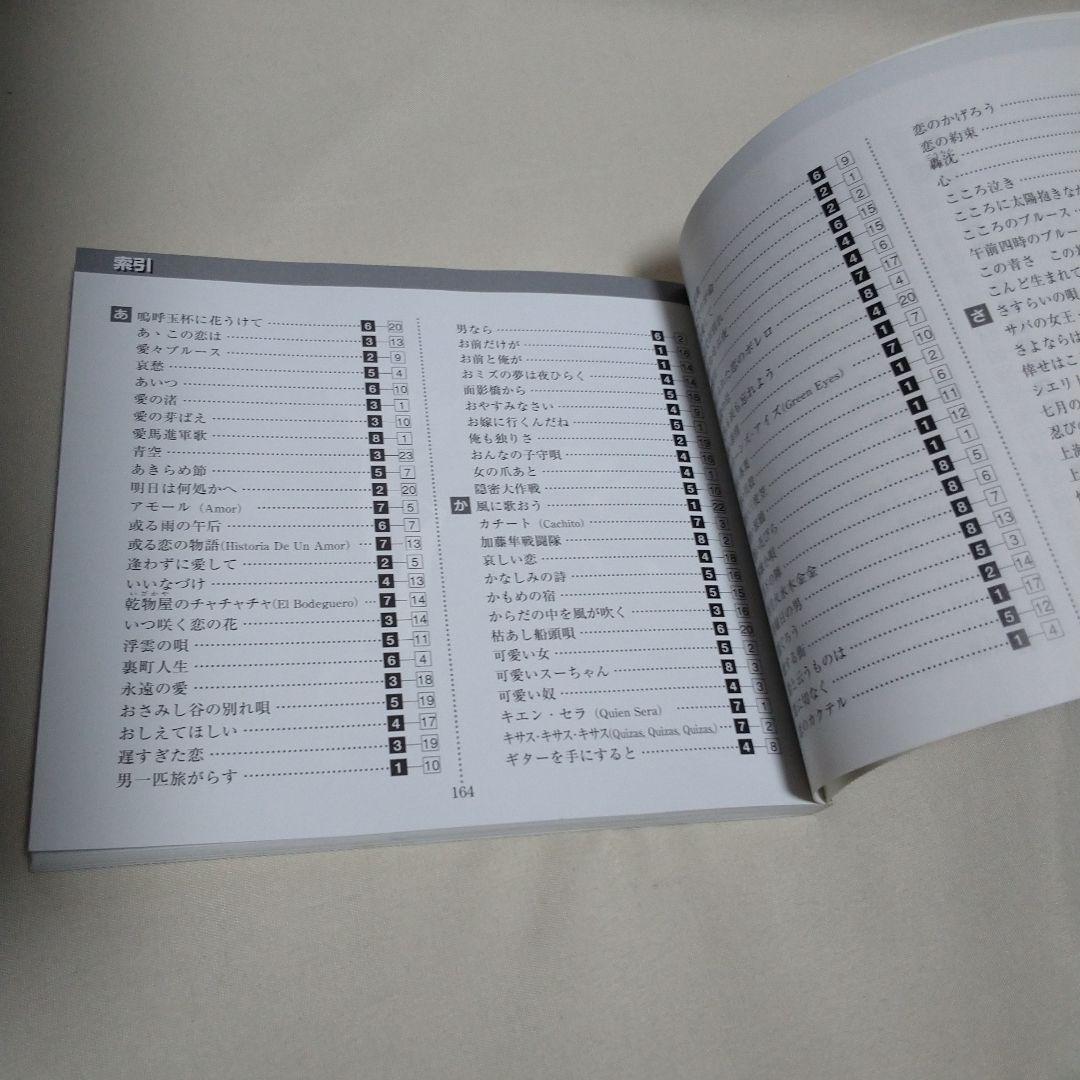 索引
あ 嗚呼玉杯に花うけて 6 20
あゝこの恋は 3 13
愛々ブルース 2 9
哀愁 5 4
あいつ 6 10
愛の渚 3 1
愛の芽ばえ 3 10
愛馬進軍歌 8 1
青空 3 23
あきらめ節 5 7
明日は何処かへ 2 20
アモール (Amor) 7 5
或る雨の午后 6 7
或る恋の物語(Historia De Un Amor) 7 13
逢わずに愛して 2 5
いいなづけ 4 13
いざかや
乾物屋のチャチャチャ(El Bodeguero) 7 14
いつ咲く恋の花 3 14
浮雲の唄 5 11
裏町人生 6 4
永遠の愛 3 18
おさみし谷の別れ唄 5 19
おしえてほしい 4 17
遅すぎた恋 3 19
男一匹旅がらす 1 10
男なら 6 2
お前だけが 1 16
お前と俺が 1 14
おミズの夢は夜ひらく 4 14
面影橋から 5 18
おやすみなさい 4 9
お嫁に行くんだね 5 1
俺も独りさ 2 19
おんなの子守唄 4 16
女の爪あと 4 1
隠密大作戦 5 10
か 風に歌おう 1 22
カチート (Cachito) 7 3
加藤隼戦闘隊 8 2
哀しい恋 4 18
かなしみの詩 5 16
かもめの宿 5 15
からだの中を風が吹く 3 16
枯あし船頭唄 6 20
可愛い女 5 2
可愛いスーちゃん 8 3
可愛い奴 4 3
キエン・セラ (Quien Sera) 7 1
キサス・キサス・キサス(Quizas, Quizas, Quizas,) 7 2
ギターを手にすると 4 8
164
6 9
2 1
2 2
6 15
4 15
4 6
7 17
8 4
恋のボレロ 4 20
も忘れよう 1 7
アイズ(Green Eyes) 7 10
1 2
1 6
1 11
1 12
8 1
8 5
8 6
8 7
水木金金 5 13
日の男 2 3
1 14
うものは 5 17
男なく 1 12
のカクテル 4
恋のかげろう
恋の約束
轟沈
心
こころ泣き
こころに太陽抱きな
こころのブルース
午前四時のブルー
この青さ この
こんど生まれて
さ さすらいの唄
サバの女王
さよならは
倖せはこ
シエリー
七月の
忍びの
上海
上